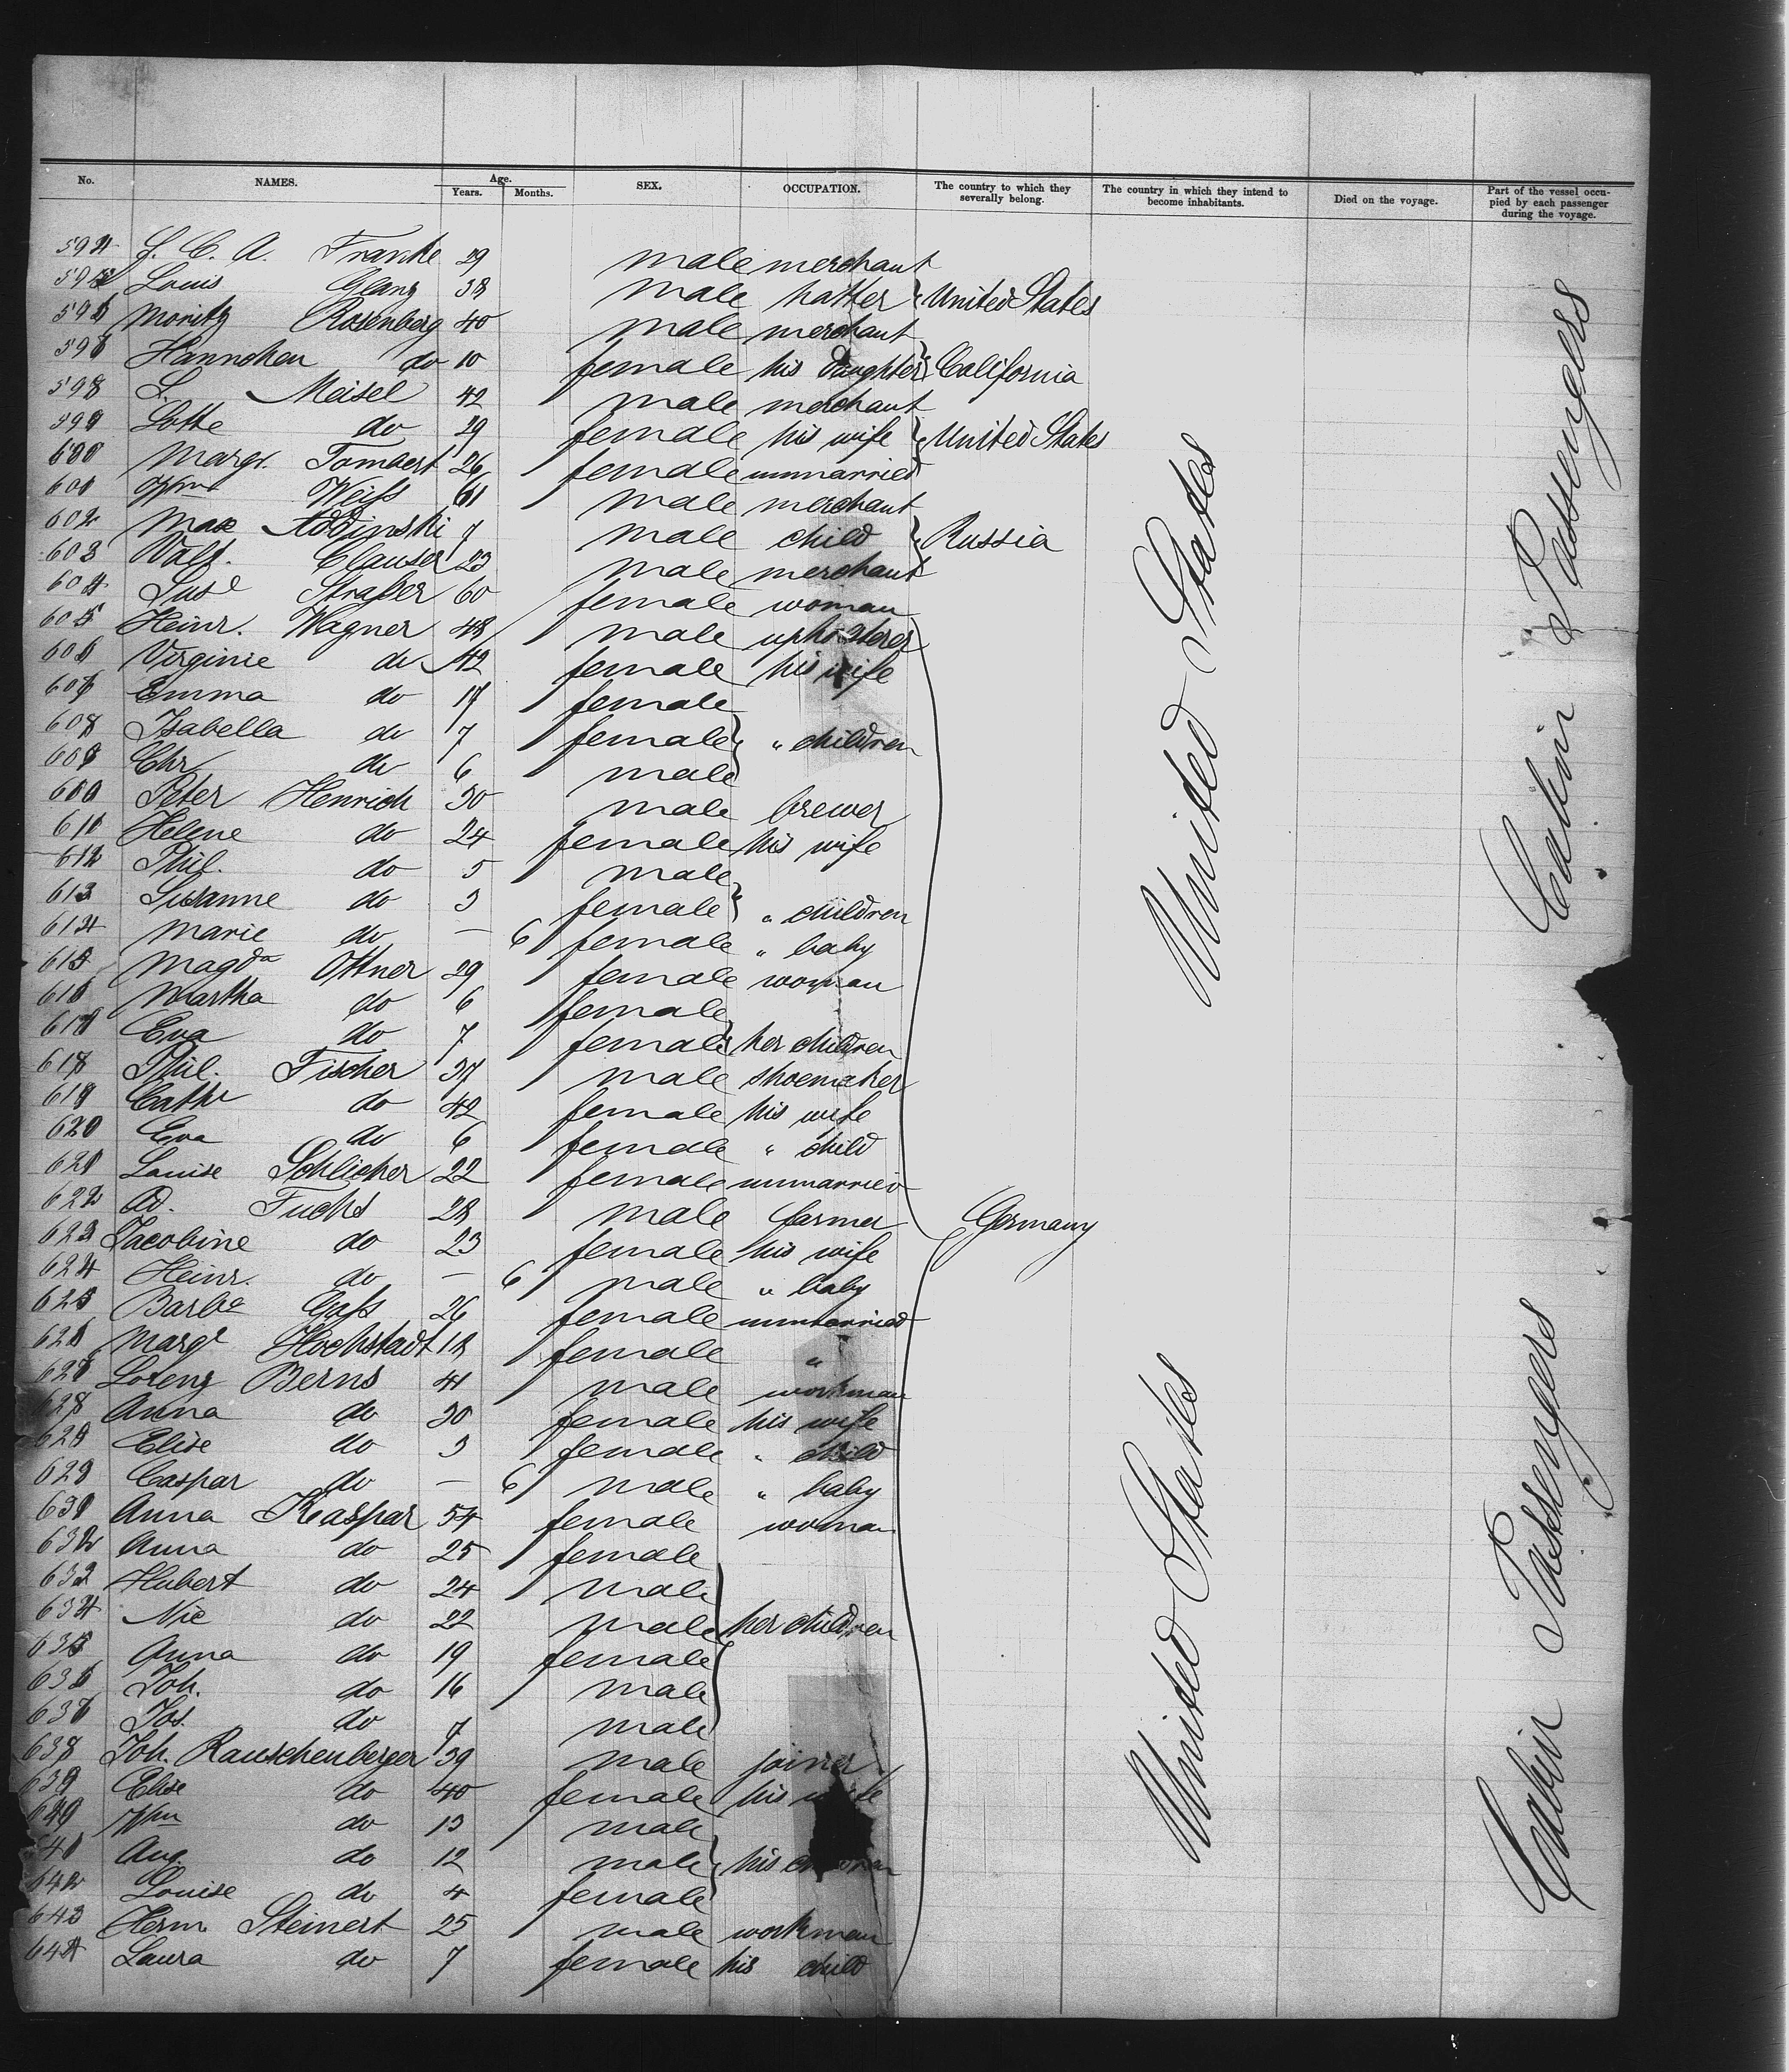 No. NAMES. Age. Years. Months. SEX. OCCUPATION. The country to which they severally belong. The country in which they intend to become inhabitants. Died on the voyage. Part of the vessel occupied by each passenger during the voyage.
594 J. C. A. Franke 29 male merchant
595 Louis Glanz 38 male hatter United States
596 Moritz Rosenberg 40 male merchant
597 Hannchen do 10 female his daughter California
598 S. Meisel 42 male merchant
599 Lotte do 29 female his wife United States
600 Margr. Tombert 26 female unmarried
601 Wm Weiss 61 male merchant
602 Max 7 male child Russia
603 Valt. Clauser 23 male merchant
604 Suse Strasser 60 female woman
605 Heinr. Wagner 48 male upholsterer
606 Virginie do 42 female his wife
607 Emma do 17 female
608 Isabella do 7 female " children
609 Chr do 6 male
610 Peter Henrich 30 male brewer
611 Helene do 24 female his wife
612 Phil. do 5 male
613 Susanne do 3 female " children
614 Marie do — 6 female " baby
615 Magda Ottner 29 female woman
616 Martha do 6 female
617 Eva do 7 female her children
618 Phil. Fischer 37 male shoemaker
619 Cathr do 42 female his wife
620 Eva do 6 female " child
621 Louise Schlicher 22 female unmarried
622 Ad. Fuchs 28 male farmer Germany
623 Jacobine do 23 female his wife
624 Heinr. do — 6 male " baby
625 Barba Gass 26 female unmarried
626 Margr Hochstadt 18 female "
627 Lorenz Berns 41 male workman
628 Anna do 30 female his wife
629 Elise do 3 female " child
629 Caspar do — 6 male " baby
631 Anna Kaspar 54 female woman
632 Anna do 25 female
633 Hubert do 24 male
634 Nic do 22 male her children
635 Anna do 19 female
636 Joh. do 16 male
637 Jos. do 7 male
638 Joh. Rauschenberger 39 male joiner
639 Elise do 40 female his wife
640 Wm do 13 male
641 Aug. do 12 male his children
642 Louise do 4 female
643 Herm Steinert 25 male workman
644 Laura do 7 female his child
United States
United States
Cabin Passengers
Cabin Passengers